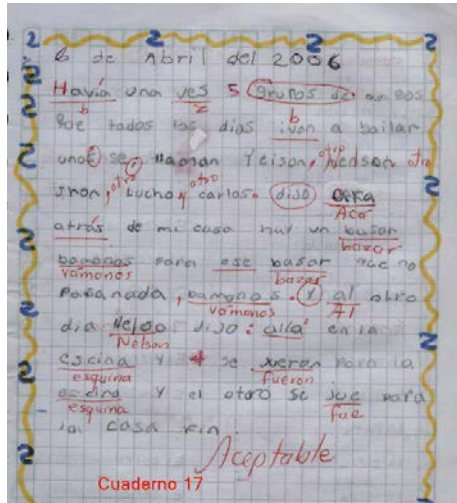 6 de Abril del 2006
Havia una ves 5 grupos de
b z b
que todos los dias ivan a bailar
unos se llaman Yeison, otro Nedson otro
Jron, otro Lucho, otro carlos. dijo
Acá
atrás de mi casa hay un basar
bazar
bamonos para ese basar que no
vámonos bazar
pasanada, bamonos. y al otro
vámonos Al
dia Nelso dijo: allá en la
Nelson
escina y se jueron para la
esquina fueron
escina y el otoro se jue para
esquina fue
la casa fin.
Aceptable
Cuaderno 17